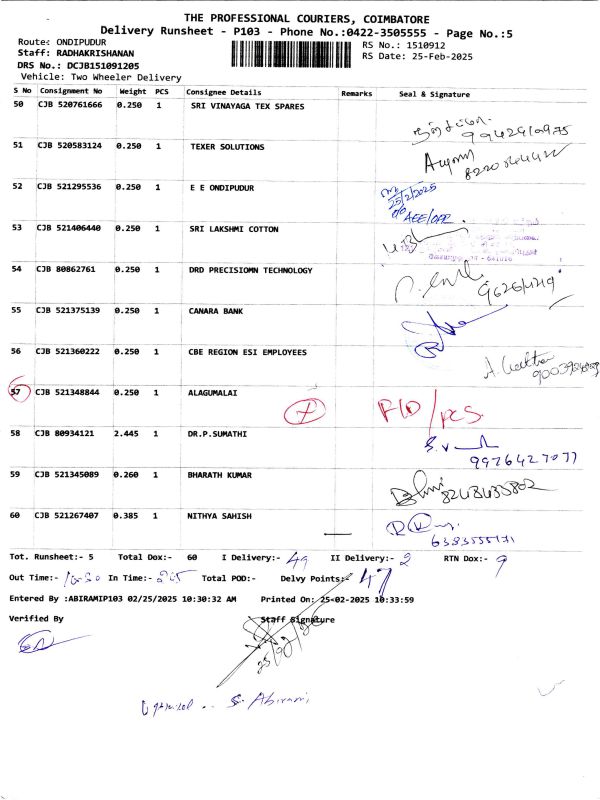 THE PROFESSIONAL COURIERS, COIMBATORE
Delivery Runsheet - P103 - Phone No.:0422-3505555 - Page No.:5
Route: ONDIPUDUR
RS No.: 1510912
Staff: RADHAKRISHANAN
RS Date: 25-Feb-2025
DRS No.: DCJB151091205
Vehicle: Two Wheeler Delivery
S No Consignment No Weight PCS Consignee Details Remarks Seal & Signature
50 CJB 520761666 0.250 1 SRI VINAYAGA TEX SPARES
9942910975
51 CJB 520583124 0.250 1 TEXER SOLUTIONS
52 CJB 521295536 0.250 1 E E ONDIPUDUR
25/2/2025
AEE/OPR
53 CJB 521406440 0.250 1 SRI LAKSHMI COTTON
54 CJB 80862761 0.250 1 DRD PRECISIOMN TECHNOLOGY
55 CJB 521375139 0.250 1 CANARA BANK
56 CJB 521360222 0.250 1 CBE REGION ESI EMPLOYEES
57 CJB 521348844 0.250 1 ALAGUMALAI
58 CJB 80934121 2.445 1 DR.P.SUMATHI
9976427077
59 CJB 521345089 0.260 1 BHARATH KUMAR
60 CJB 521267407 0.385 1 NITHYA SAHISH
Tot. Runsheet:- 5 Total Dox:- 60 I Delivery:- 49 II Delivery:- 2 RTN Dox:- 9
Out Time:- 10:30 In Time:- Total POD:- Delvy Points:- 47
Entered By :ABIRAMIP103 02/25/2025 10:30:32 AM Printed On: 25-02-2025 10:33:59
Verified By Staff Signature
25/02/25
S. Abirami